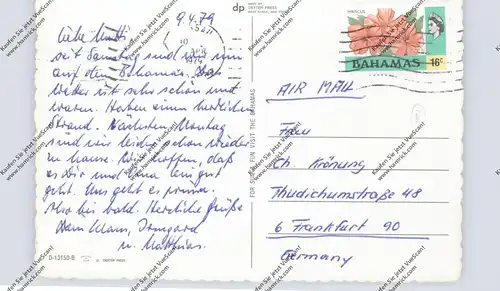 9.4.79
Liebe Mutti
seit Samstag sind wir nun
auf den Bahamas. Das
Wetter ist sehr schön und
warm. Haben einen herrlichen
Strand. Nächsten Montag
sind wir leider schon wieder
zu Hause. Wir hoffen, daß
es Dir und Oma gut
geht. Uns geht es prima.
Also bis bald. Herzliche Grüße
Dein Klaus, Irmgard
u. Matthias.
D-13150-B
DEXTER PRESS
FOR FUN IN THE SUN VISIT THE BAHAMAS
dp
DEXTER PRESS
HIBISCUS
BAHAMAS 16c
APR
1979
AIR MAIL
Frau
Ch. Krönung
Thudichumstraße 48
6 Frankfurt 90
Germany
Kaufen Sie jetzt VueScan!
www.hamrick.com